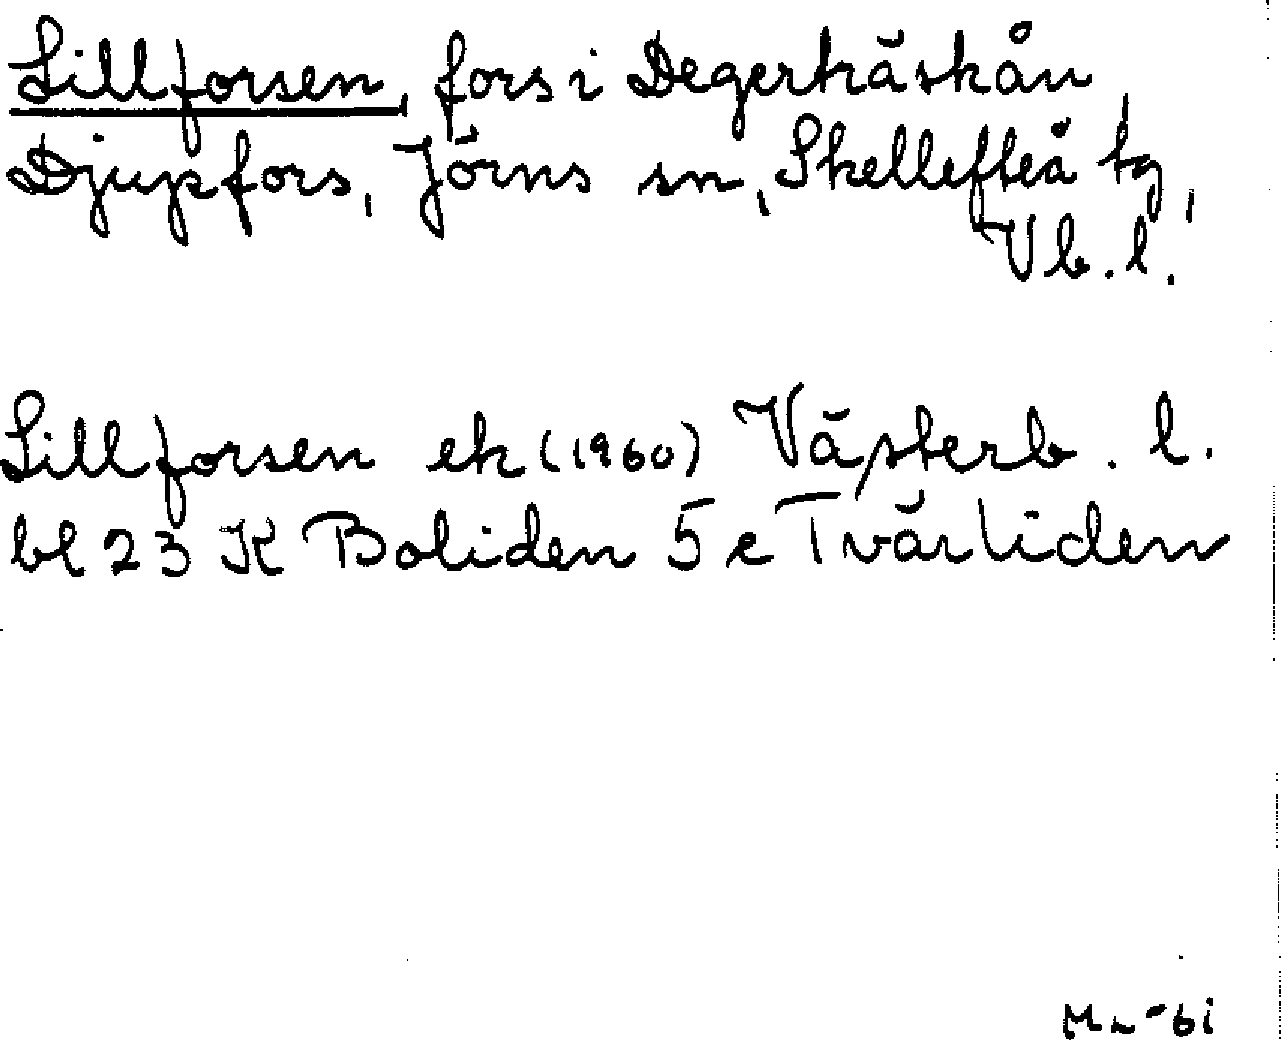 Lillforsen, fors i Degerträskån,
Djupfors, Jörns sn, Skellefteå tg,
Vb. l.
Lillforsen ek (1960) Västerb. l.
bl 23 K Boliden 5 e Tvärliden